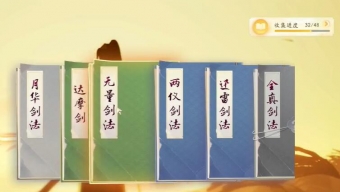 收集进度 32/46
月华剑法
达摩剑
无量剑法
两仪剑法
迅雷剑法
全真剑法